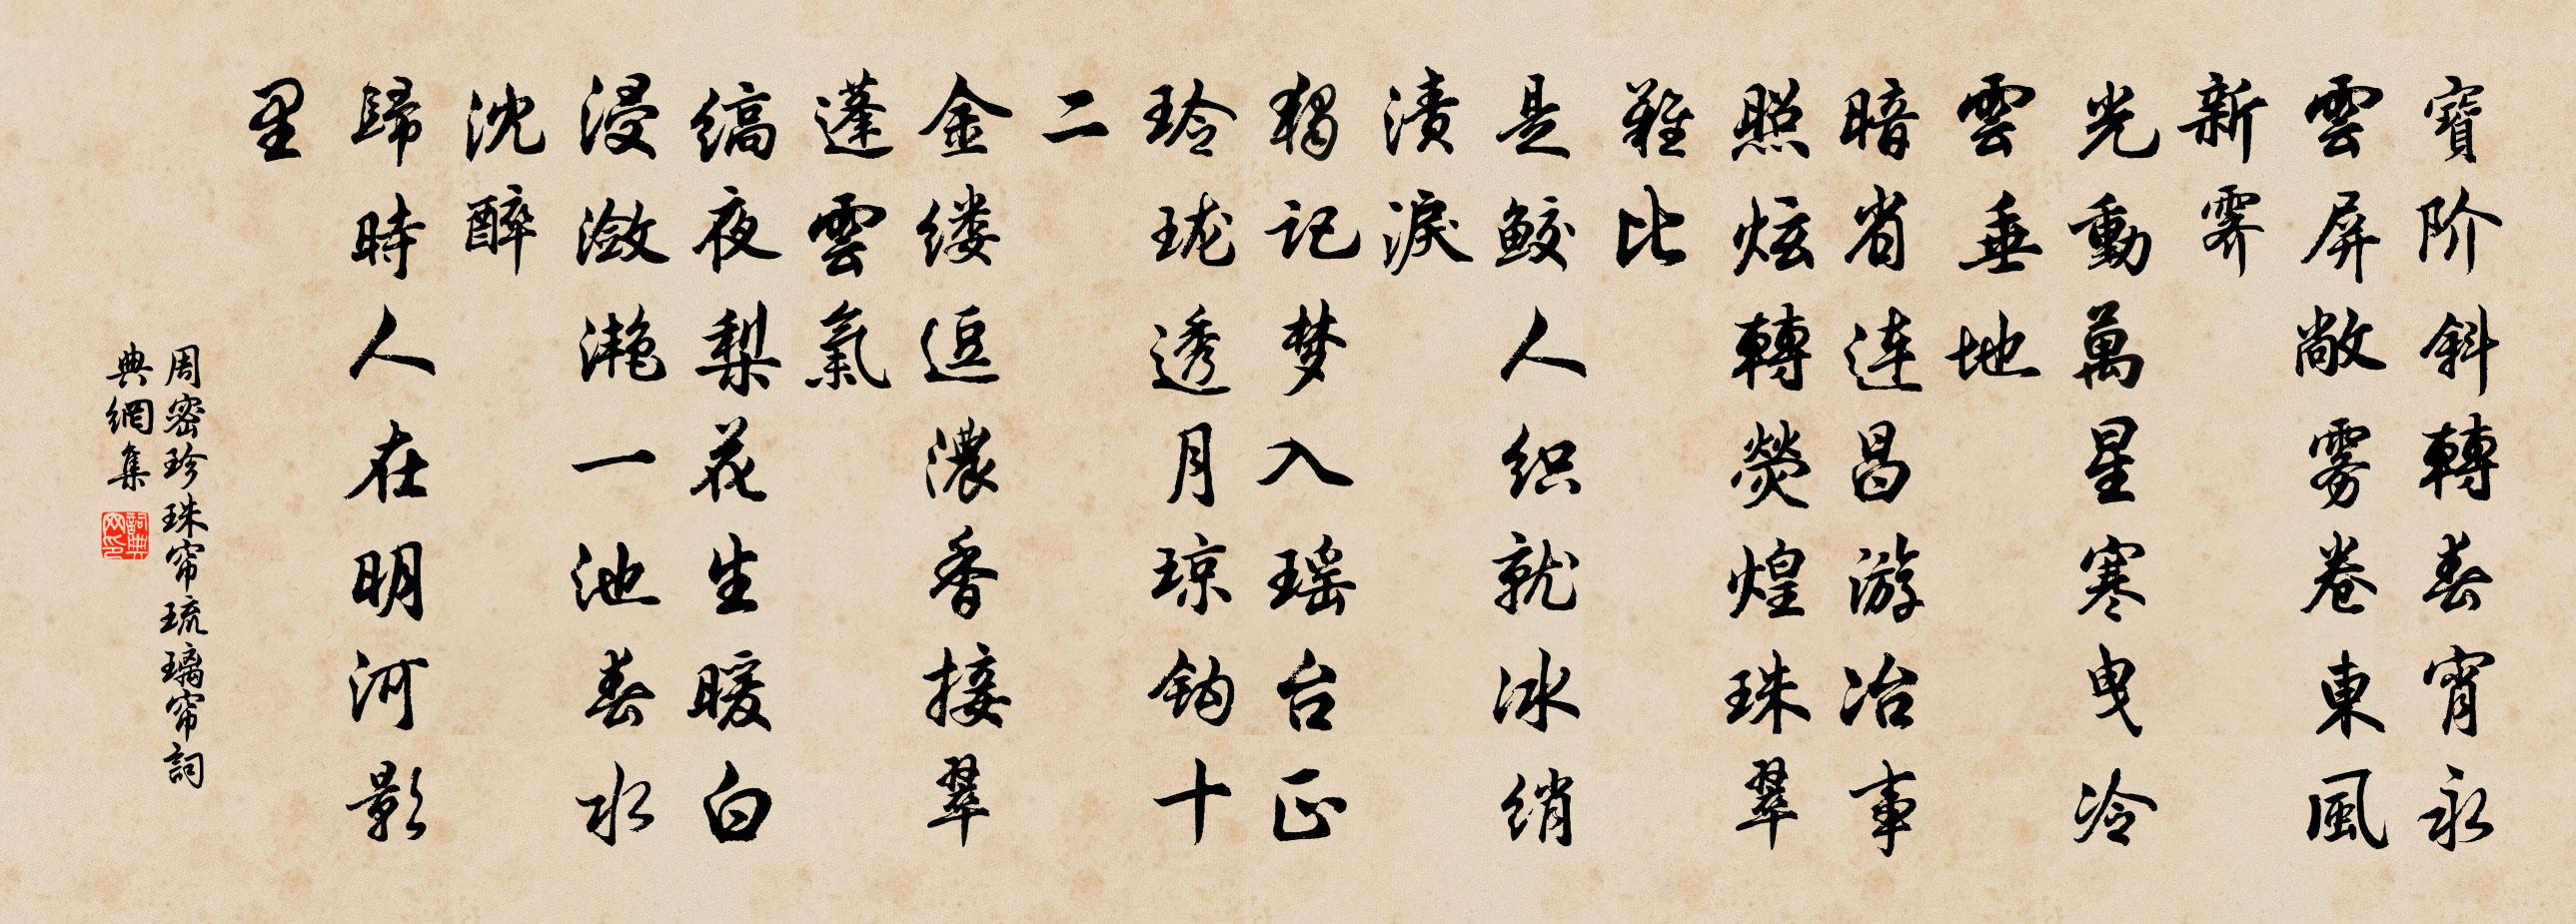 寶阶斜轉春宵永
雲屏敞雾卷東風
新霁
光動萬星寒曳冷
雲垂地
暗省连昌游冶事
照炫轉熒煌珠翠
難比
是鲛人织就冰绡
渍淚
獨记梦入瑶台正
玲珑透月琼钩十
二
金缕逗濃香接翠
蓬雲氣
缟夜梨花生暖白
浸潋滟一池春水
沈醉
歸時人在明河影
里
周密珍珠帘琉璃帘詞
典網集
詞典
网印